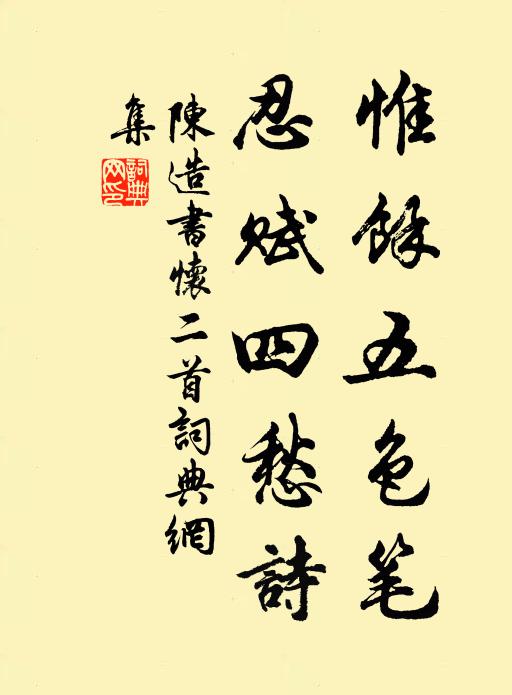 惟餘五色笔
忍赋四愁詩
陳造書懷二首詞典網
集
詞典網印